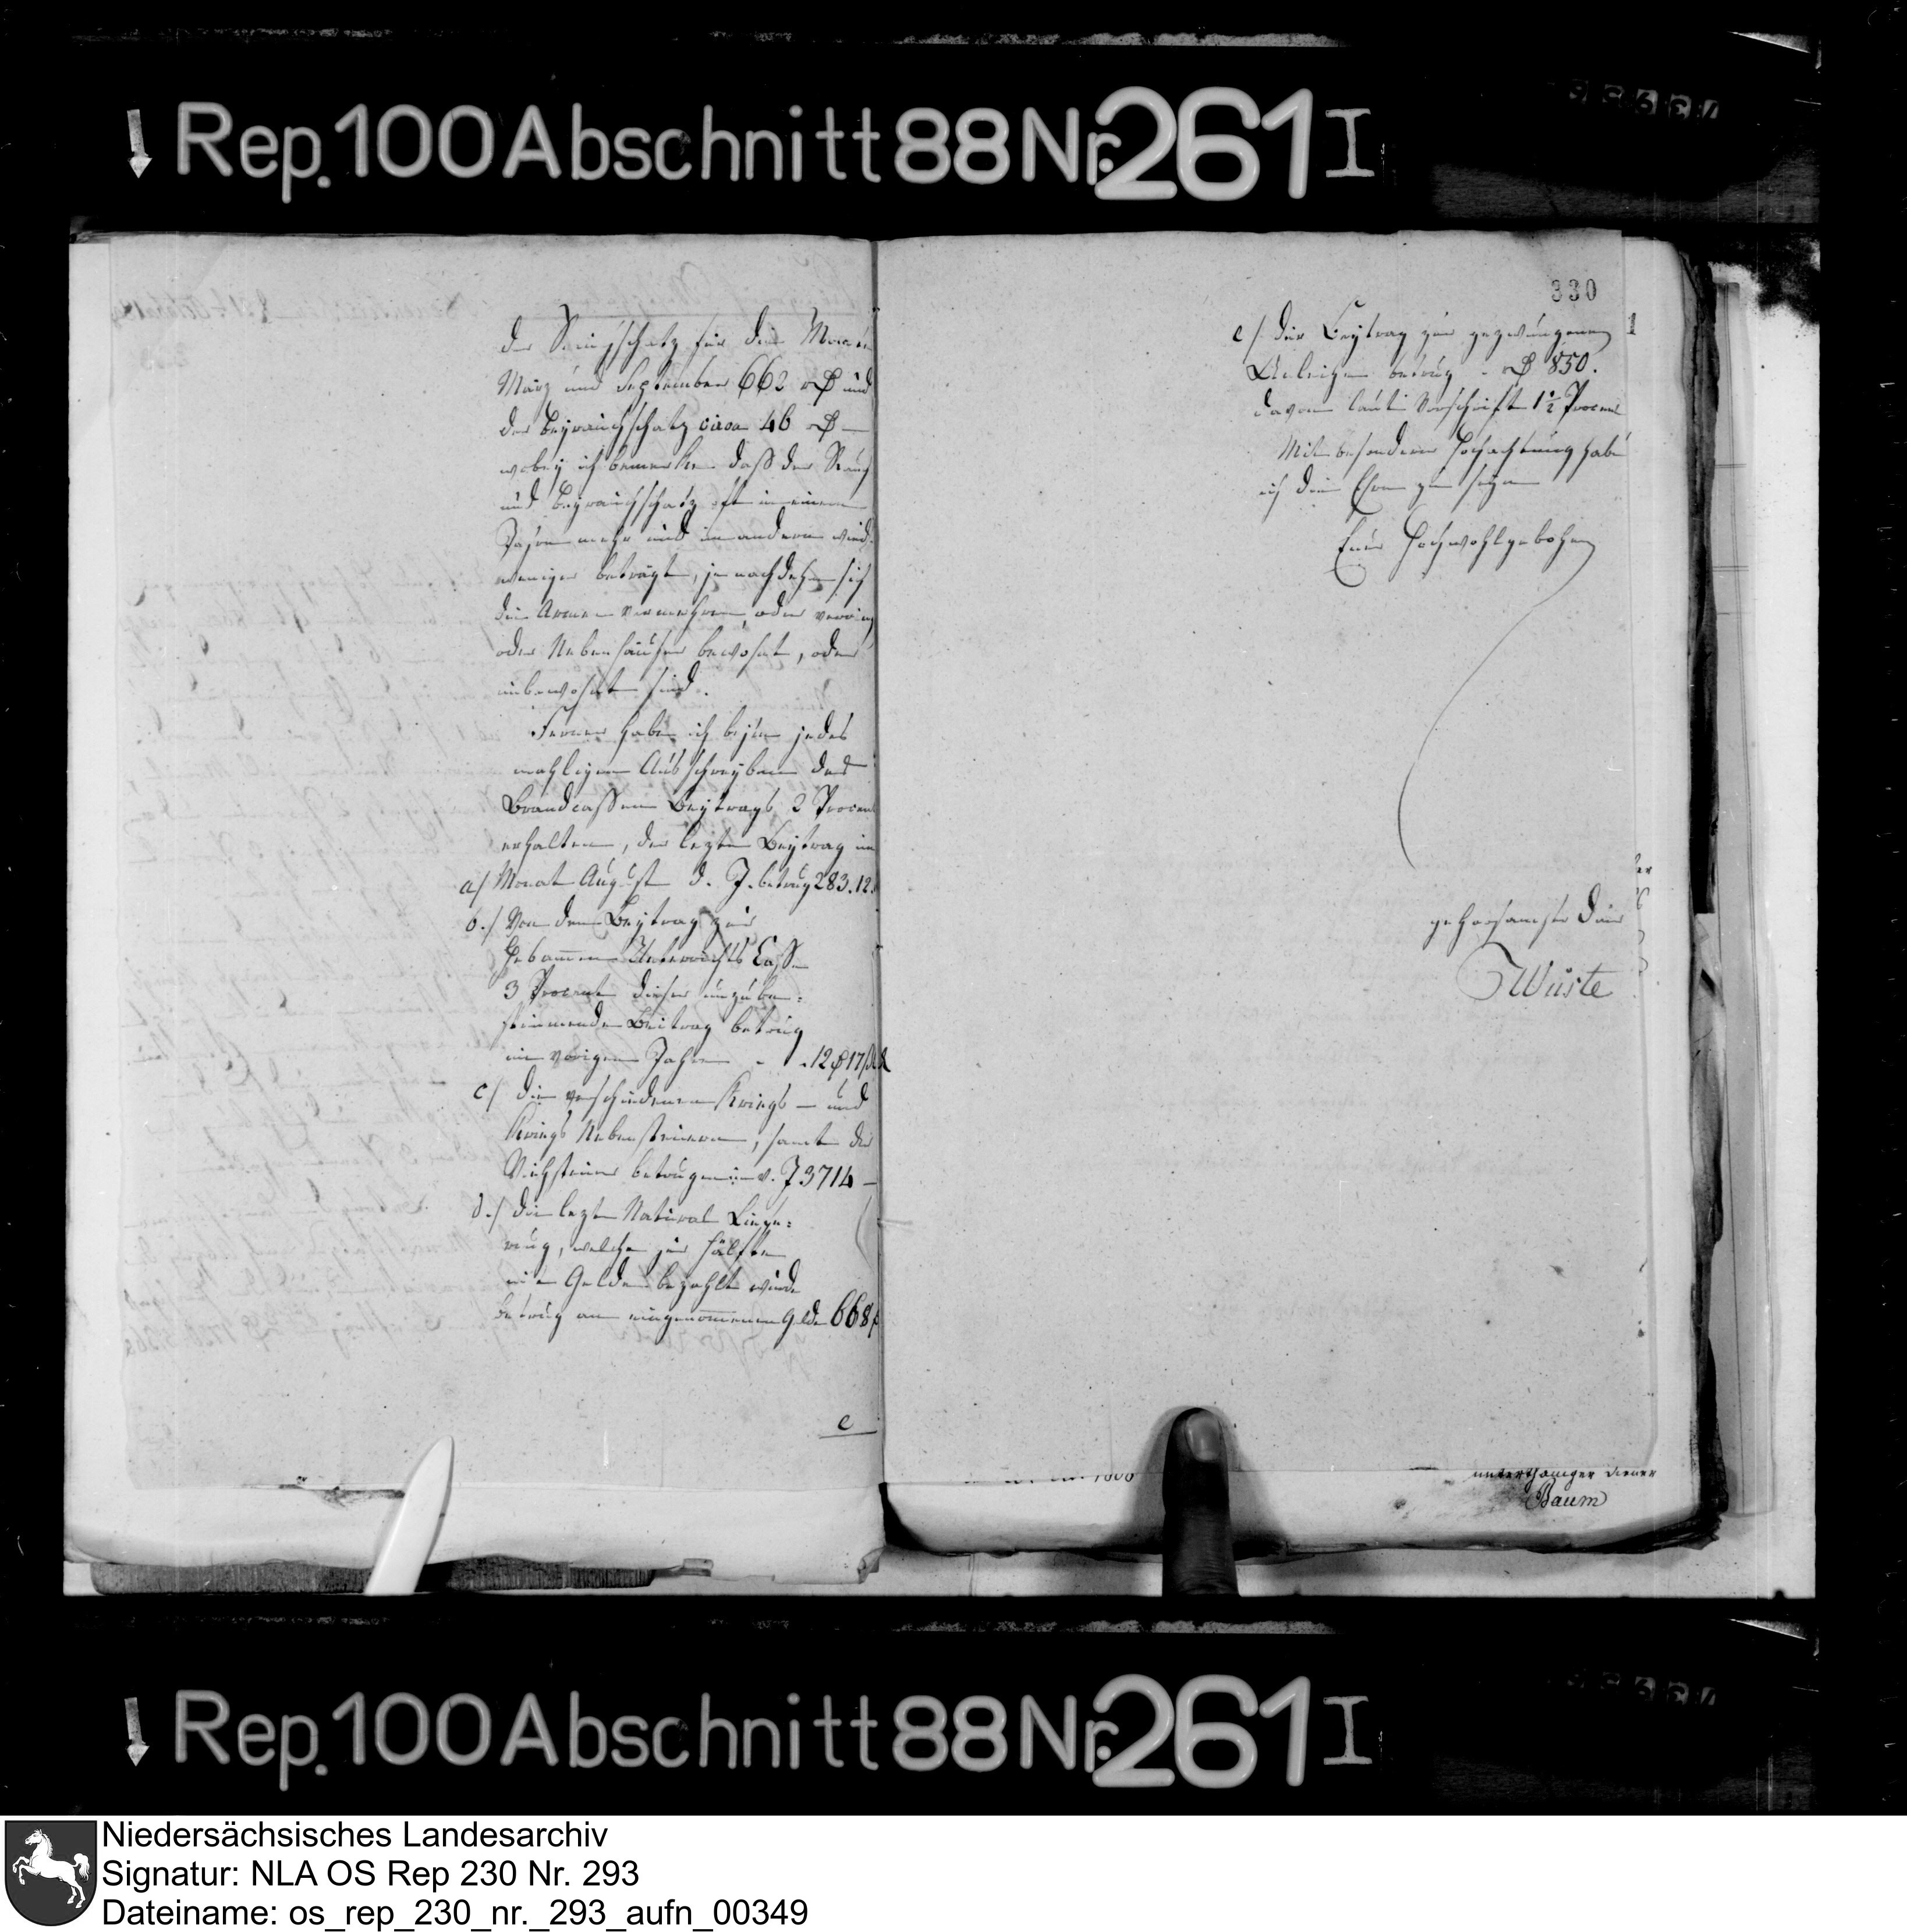 Rep. 100 Abschnitt 88 Nr. 261 I
der Rauchschatz für die Monate
März und September 662 rθ und
der Beyrauchschatz circa 46 rθ —
wobey ich bemerke daß der Rauch
und Beyrauchschatz oft in einem
Jahre mehr und im andern wied.
weniger beträgt, je nachdehm sich
die Armen vermehren, oder
oder Nebenhäuser bewohnt, oder
unbewohnt sind.
Ferner habe ich beym jedes
mahligen Ausschreyben des
Brandcassen Beytrags 2 Procent
erhalten, der lezte Beytrag im
a/ Monat August d. J. betrug 283.12.
b./ Von dem Beytrag zur
Hebammen Unterrichts Casse
3 Procent dieser unzube=
stimmende Beitrag betrug
im vorigen Jahre - - 12 θ 17
c/ die verschiedenen Kriegs — und
Kriegs Nebensteuern, samt der
Viehsteuer betrugen im v. J 3714 —
d./ die lezte Natural Liefe=
rung, welche zur Hälfte
im Gelde bezahlt wurde
betrug am eingenommenen Gelde 668
e
330
e/ der Beytrag zur gezwungenen
Anleihe betrug - rθ 850.
davon laut Vorschrift 1½ Procent
Mit besonderer Hochachtung habe
ich die Ehre zu seyn
Euer Hochwohlgebohren
gehorsamster Diener
JWüste
1
unterthäniger Diener
Baum
Rep. 100 Abschnitt 88 Nr. 261 I
Niedersächsisches Landesarchiv
Signatur: NLA OS Rep 230 Nr. 293
Dateiname: os_rep_230_nr._293_aufn_00349